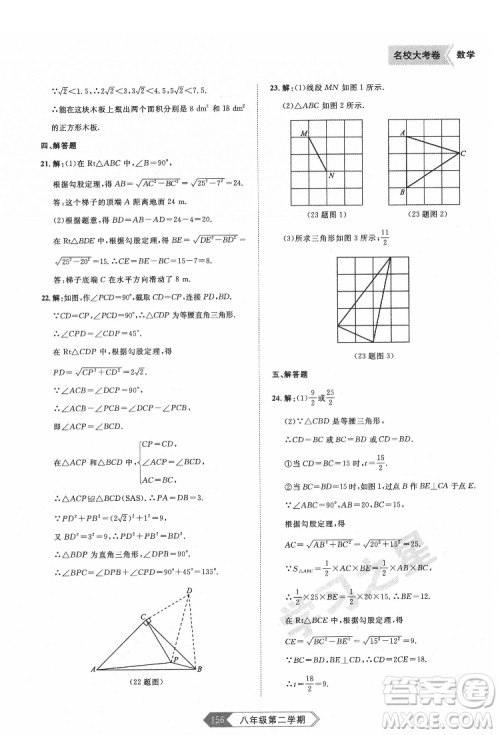 名校大考卷 数学
∵√2<1.5, ∴5√2<5×1.5, 即 5√2<7.5.
∴能在这块木板上截出两个面积是 8 dm² 和 18 dm²
的正方形木板.
四、解答题
21. 解:(1)在 Rt△ABC 中,∠B=90°,
根据勾股定理,得 AB=√(AC²−BC²)=√(25²−7²)=24.
答:这个梯子的顶端 A 距离地面 24 m.
(2)根据题意,得 BD=AB−AD=24−4=20.
在 Rt△BDE 中,根据勾股定理,得 BE=√(DE²−BD²)=
√(25²−20²)=15.
∴CE=BE−BC=15−7=8.
答:梯子底端 C 在水平方向滑动了 8 m.
22. 解:如图,作∠PCD=90°,截取 CD=CP,连接 PD,BD.
∵CD=CP,∠PCD=90°,
∴△CDP 为等腰直角三角形.
∴∠CPD=45°.
在 Rt△CDP 中,根据勾股定理,得
PD=√(CP²+CD²)=√(2²+2²)=2√2.
∵∠ACB=∠PCD=90°,
∴∠ACP=∠BCD.
在△ACP 和△BCD 中,
CP=CD,
∠ACP=∠BCD,
AC=BC,
∴△ACP≌△BCD(SAS). ∴AP=BD=3.
∵PD²+PB²=(2√2)²+1²=9,BD²=3²=9,
∴PD²+PB²=BD².
∴△BDP 为直角三角形,且∠BPD=90°.
∴∠BPC=∠BPD+∠CPD=90°+45°=135°.
D
C
P
A
B
(22 题图)
23. 解:(1)线段 MN 如图 1 所示.
(2)△ABC 如图 2 所示.
M
N
A
C
B
(23 题图 1) (23 题图 2)
(3)所求三角形如图 3 所示, 11/2
(23 题图 3)
五、解答题
24. 解:(1) 9/2 或 25/2
(2)∵△CBD 是等腰三角形,
∴CB=CD 或 BD=BC.
①当 CB=CD=15 时,t=15/2;
②当 BD=BC=15 时,过点 B 作 BE⊥CA 于点 E.
根据勾股定理,得
AC=√(AB²+BC²)=√(20²+15²)=25.
∵S△ABC=1/2·AC·BE=1/2·AB·BC,
∴1/2×25×BE=1/2×20×15.
∴BE=12.
根据勾股定理,得
CE=√(BC²−BE²)=√(15²−12²)=9.
∵BD=BC,BE⊥AC,
∴CD=2CE=18.
∴t=18/2=9.
学习之星
156 八年级第二学期
答案圈
MXQE.COM